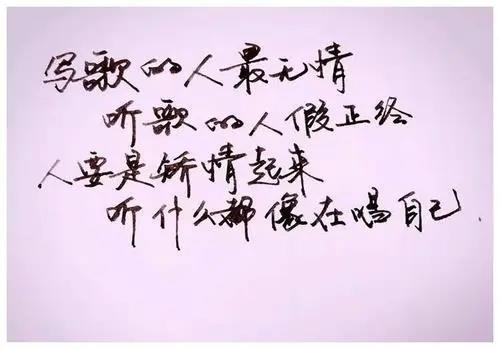 写歌的人最无情
听歌的人假正经
人要是矫情起来
听什么都像在唱自己.